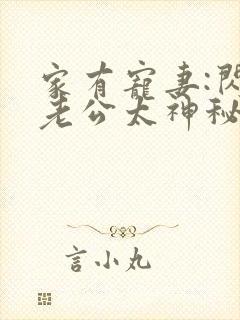 家有寵妻:閃
老公太神秘
言小丸